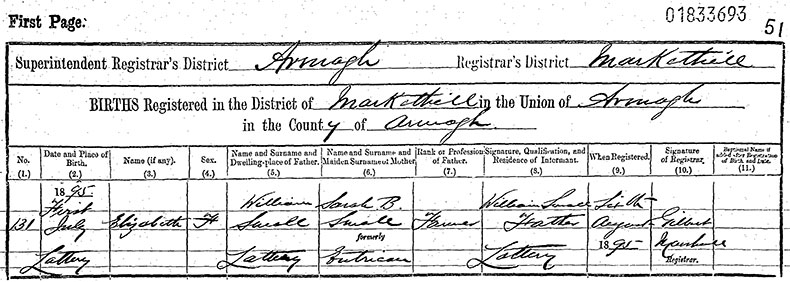 First Page: 01833693 51
Superintendent Registrar's District Armagh Registrar's District Markethill
BIRTHS Registered in the District of Markethill in the Union of Armagh
in the County of Armagh.
No. Date and Place of Birth. Name (if any). Sex. Name and Surname and Dwelling-place of Father. Name and Surname and Maiden Surname of Mother. Rank or Profession of Father. Signature, Qualification, and Residence of Informant. When Registered. Signature of Registrar. Baptismal Name if added after Registration of Birth and Date.
(1.) (2.) (3.) (4.) (5.) (6.) (7.) (8.) (9.) (10.) (11.)
1895
First William Sarah B. William Small
131 July Elizabeth F Small Small Farmer Father August Gilbert
formerly
Lattery Lattery Lattery 1895
Registrar.